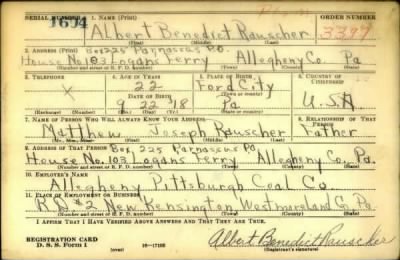 SERIAL NUMBER 1. NAME (Print) ORDER NUMBER
1694 Albert Benedict Rauscher 3397
(First) (Middle) (Last)
2. ADDRESS (Print) Box 225 Parnassus P.O.
House No. 103 Logans Ferry Allegheny Co. Pa
(Number and street or R. F. D. number) (Town) (County) (State)
3. TELEPHONE 4. AGE IN YEARS 5. PLACE OF BIRTH 6. COUNTRY OF CITIZENSHIP
X 22 Ford City
DATE OF BIRTH (Town or county)
9 22 '18 Pa U.S.A
(Exchange) (Number) (Mo.) (Day) (Yr.) (State or country)
7. NAME OF PERSON WHO WILL ALWAYS KNOW YOUR ADDRESS 8. RELATIONSHIP OF THAT PERSON
Matthew Joseph Rauscher Father
(Mr., Mrs., Miss) (First) (Middle) (Last)
9. ADDRESS OF THAT PERSON Box 225 Parnassus Pa.
House No. 103 Logans Ferry Allegheny Co. Pa.
(Number and street or R. F. D. number) (Town) (County) (State)
10. EMPLOYER'S NAME
Allegheny Pittsburgh Coal Co.
11. PLACE OF EMPLOYMENT OR BUSINESS
R.D. #2 New Kensington, Westmoreland Co, Pa.
(Number and street or R. F. D. number) (Town) (County) (State)
I AFFIRM THAT I HAVE VERIFIED ABOVE ANSWERS AND THAT THEY ARE TRUE.
REGISTRATION CARD
D. S. S. Form 1 (over) 16—17105 Albert Benedict Rauscher
(Registrant's signature)